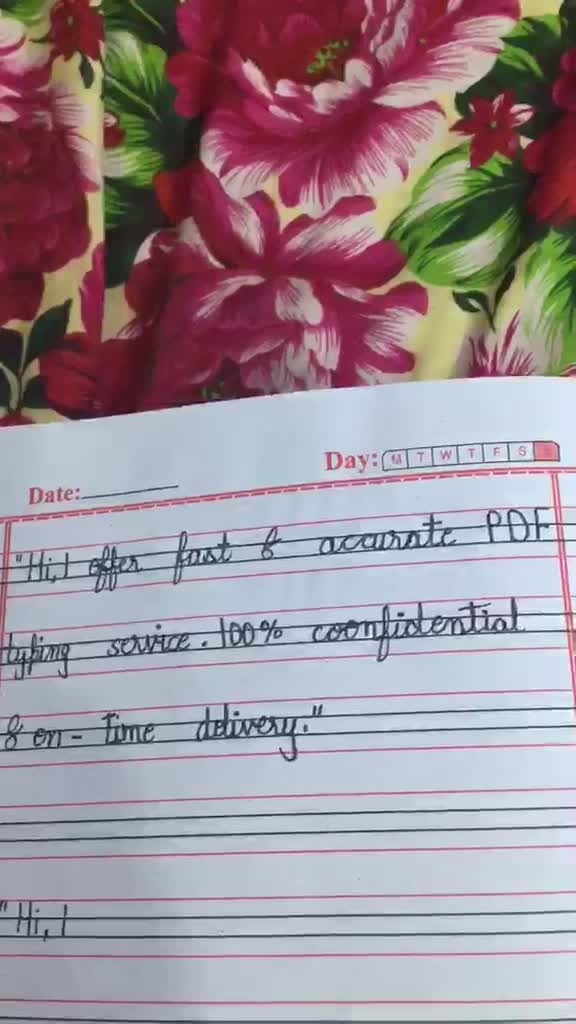 Day: M T W T F S S
Date:
"Hi, I offer fast & accurate PDF
typing service. 100% coonfidential
& on-time delivery."
"Hi, I